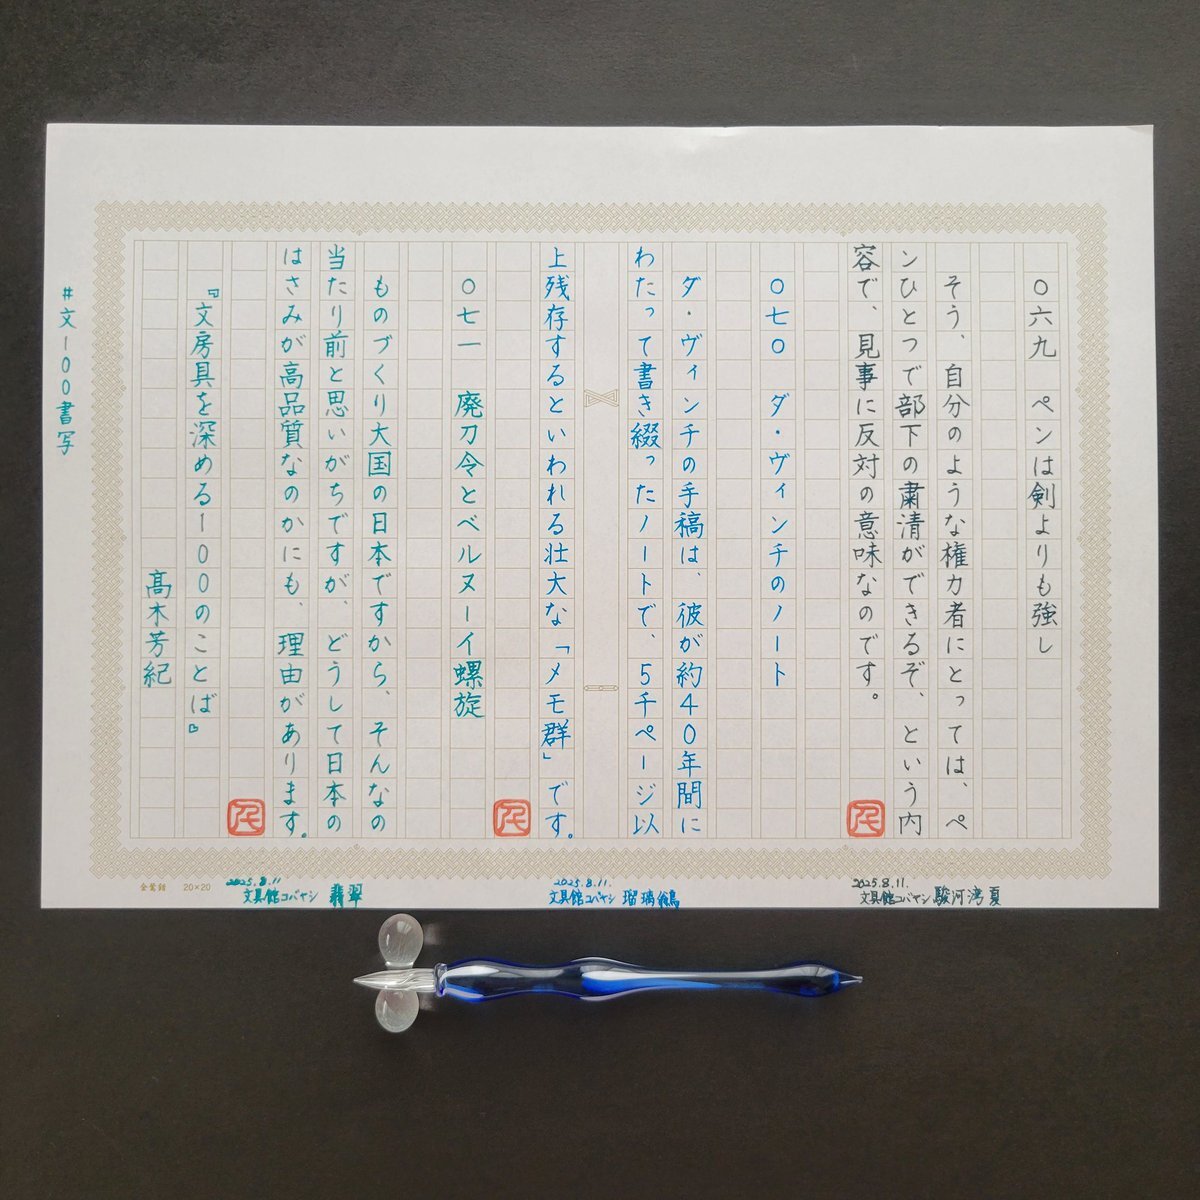 〇六九　ペンは剣よりも強し
そう、自分のような権力者にとっては、ペ
ンひとつで部下の粛清ができるぞ、という内
容で、見事に反対の意味なのです。
〇七〇　ダ・ヴィンチのノート
ダ・ヴィンチの手稿は、彼が約40年間に
わたって書き綴ったノートで、5千ページ以
上残存するといわれる壮大な「メモ群」です。
〇七一　廃刀令とベルヌーイ螺旋
ものづくり大国の日本ですから、そんなの
当たり前と思いがちですが、どうして日本の
はさみが高品質なのかにも、理由があります。
『文房具を深める100のことば』
髙木芳紀
#文100書写
2025.8.11.
文具館コバヤシ 駿河湾夏
2025.8.11.
文具館コバヤシ 瑠璃鶲
2025.8.11
文具館コバヤシ 翡翠
20×20